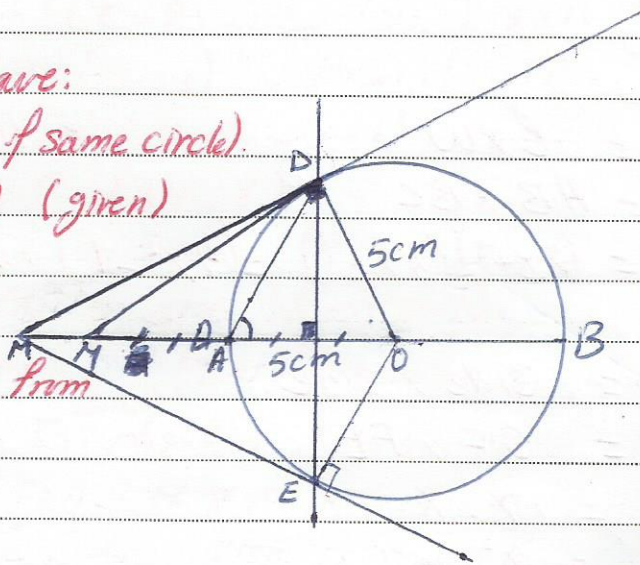 ave:
f same circle).
) (given)
D
5cm
M M A 5cm O B
from
E